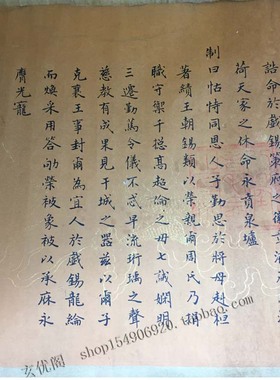 誥命於戲錫策府之徽章洊
荷天家之休命永賁泉壚
制曰怙恃同恩人子勤思於將母赳桓
著績王朝錫類以榮親爾周氏乃
職守禦千總高超倫之母七誡嫻明
三遷勤篤令儀不忒早流珩瑀之聲
慈教有成果見干城之器茲以爾子
克襄王事封爾為宜人於戲錫龍綸
而煥采用答劬榮被象被以承庥永
膺光寵
玄优阁 shop154906920.taobao.com